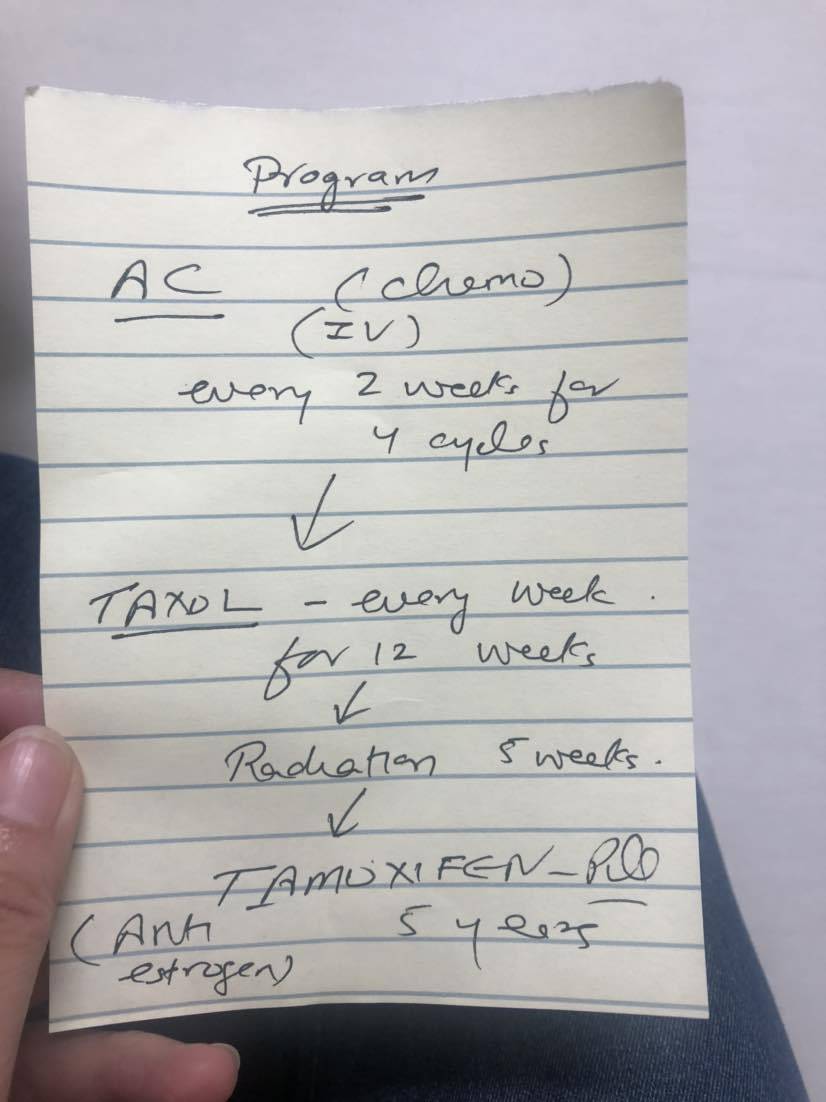 Program
AC (chemo)
(IV)
every 2 weeks for
4 cycles
TAXOL - every week.
for 12 weeks
Radiation 5 weeks.
TAMOXIFEN - Pill
(Anti 5 years
estrogen)